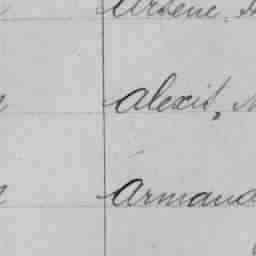 Arsène,
Alexis,
Armand